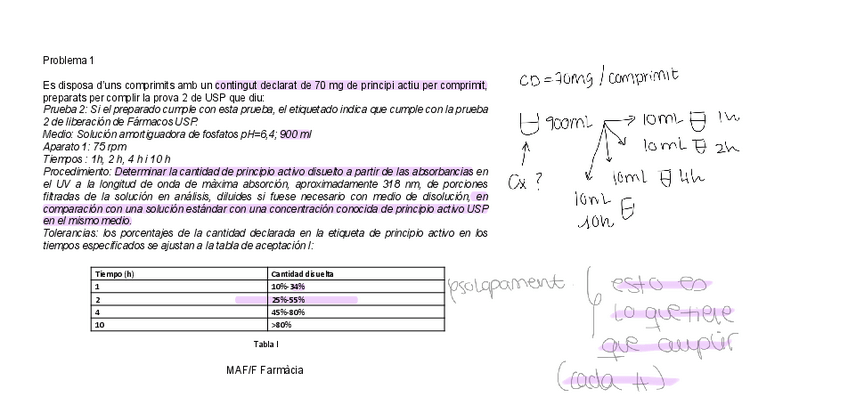 Problema 1
Es disposa d'uns comprimits amb un contingut declarat de 70 mg de principi actiu per comprimit,
preparats per complir la prova 2 de USP que diu:
Prueba 2: Si el preparado cumple con esta prueba, el etiquetado indica que cumple con la prueba
2 de liberación de Fármacos USP.
Medio: Solución amortiguadora de fosfatos pH=6,4; 900 ml
Aparato 1: 75 rpm
Tiempos : 1h, 2 h, 4 h i 10 h
Procedimiento: Determinar la cantidad de principio activo disuelto a partir de las absorbancias en
el UV a la longitud de onda de máxima absorción, aproximadamente 318 nm, de porciones
filtradas de la solución en análisis, diluides si fuese necesario con medio de disolución, en
comparación con una solución estándar con una concentración conocida de principio activo USP
en el mismo medio.
Tolerancias: los porcentajes de la cantidad declarada en la etiqueta de principio activo en los
tiempos especificados se ajustan a la tabla de aceptación I:
Tiempo (h) Cantidad disuelta
1 10%-34%
2 25%-55%
4 45%-80%
10 >80%
Tabla I
MAF/F Farmàcia
CD = 70mg / comprimit
900mL
10mL 1h
10mL 2h
10mL 4h
10mL
10h
Cx ?
esto es
lo que tiene
que cumplir
(cada t)